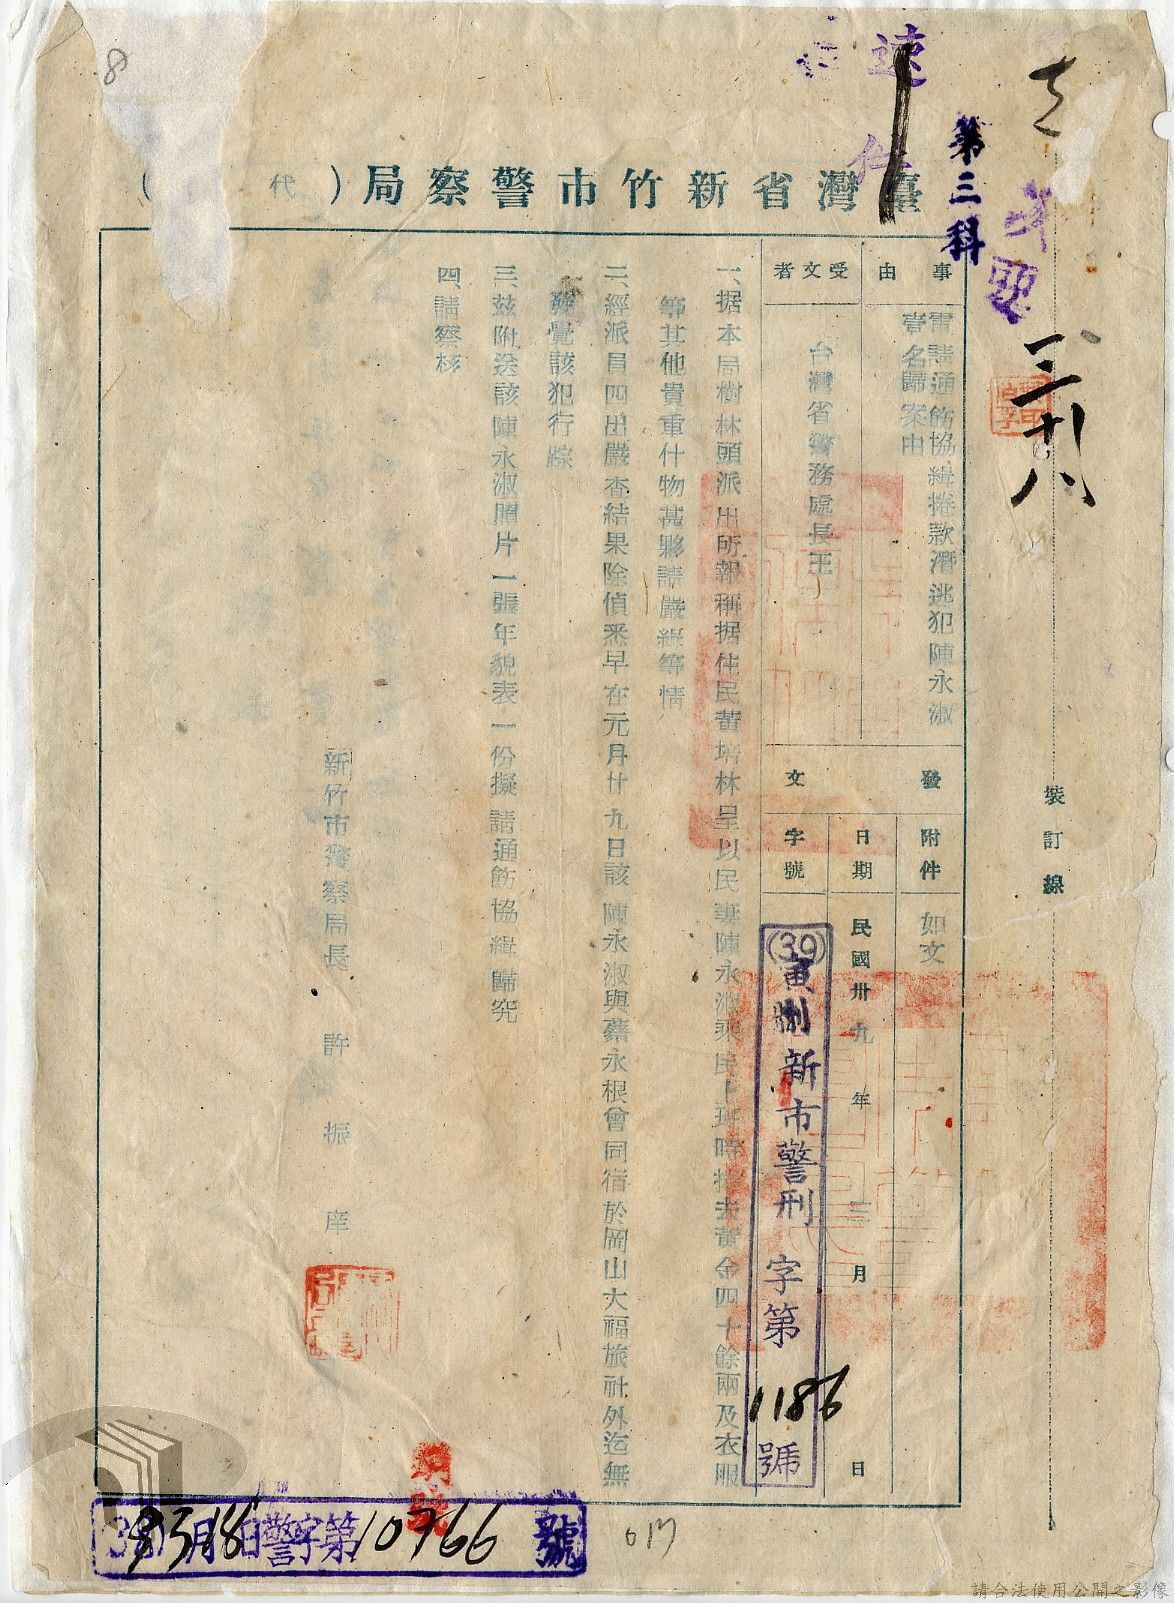 8
速
第三科
臺灣省新竹市警察局（代
事由
電請通飭協緝捲款潛逃犯陳永淑
壹名歸案由
受文者
台灣省警務處長王
發文
附件
如文
日期
民國卅九年三月日
字號
(39)寅刪新市警刑字第1186號
一、据本局樹林頭派出所報稱据住民黃培林呈以民妻陳永淑乘民上班時捲去黃金四十餘兩及衣服
等其他貴重什物甚夥請嚴緝等情
二、經派員四出嚴查結果除偵悉早在元月廿九日該陳永淑與蔡永根曾同宿於岡山大福旅社外迄無
發覺該犯行踪
三、茲附送該陳永淑照片一張年貌表一份擬請通飭協緝歸究
四、請察核
新竹市警察局長許振庠
裝訂線
39 3月18日警字第10766號
請合法使用公開之影像